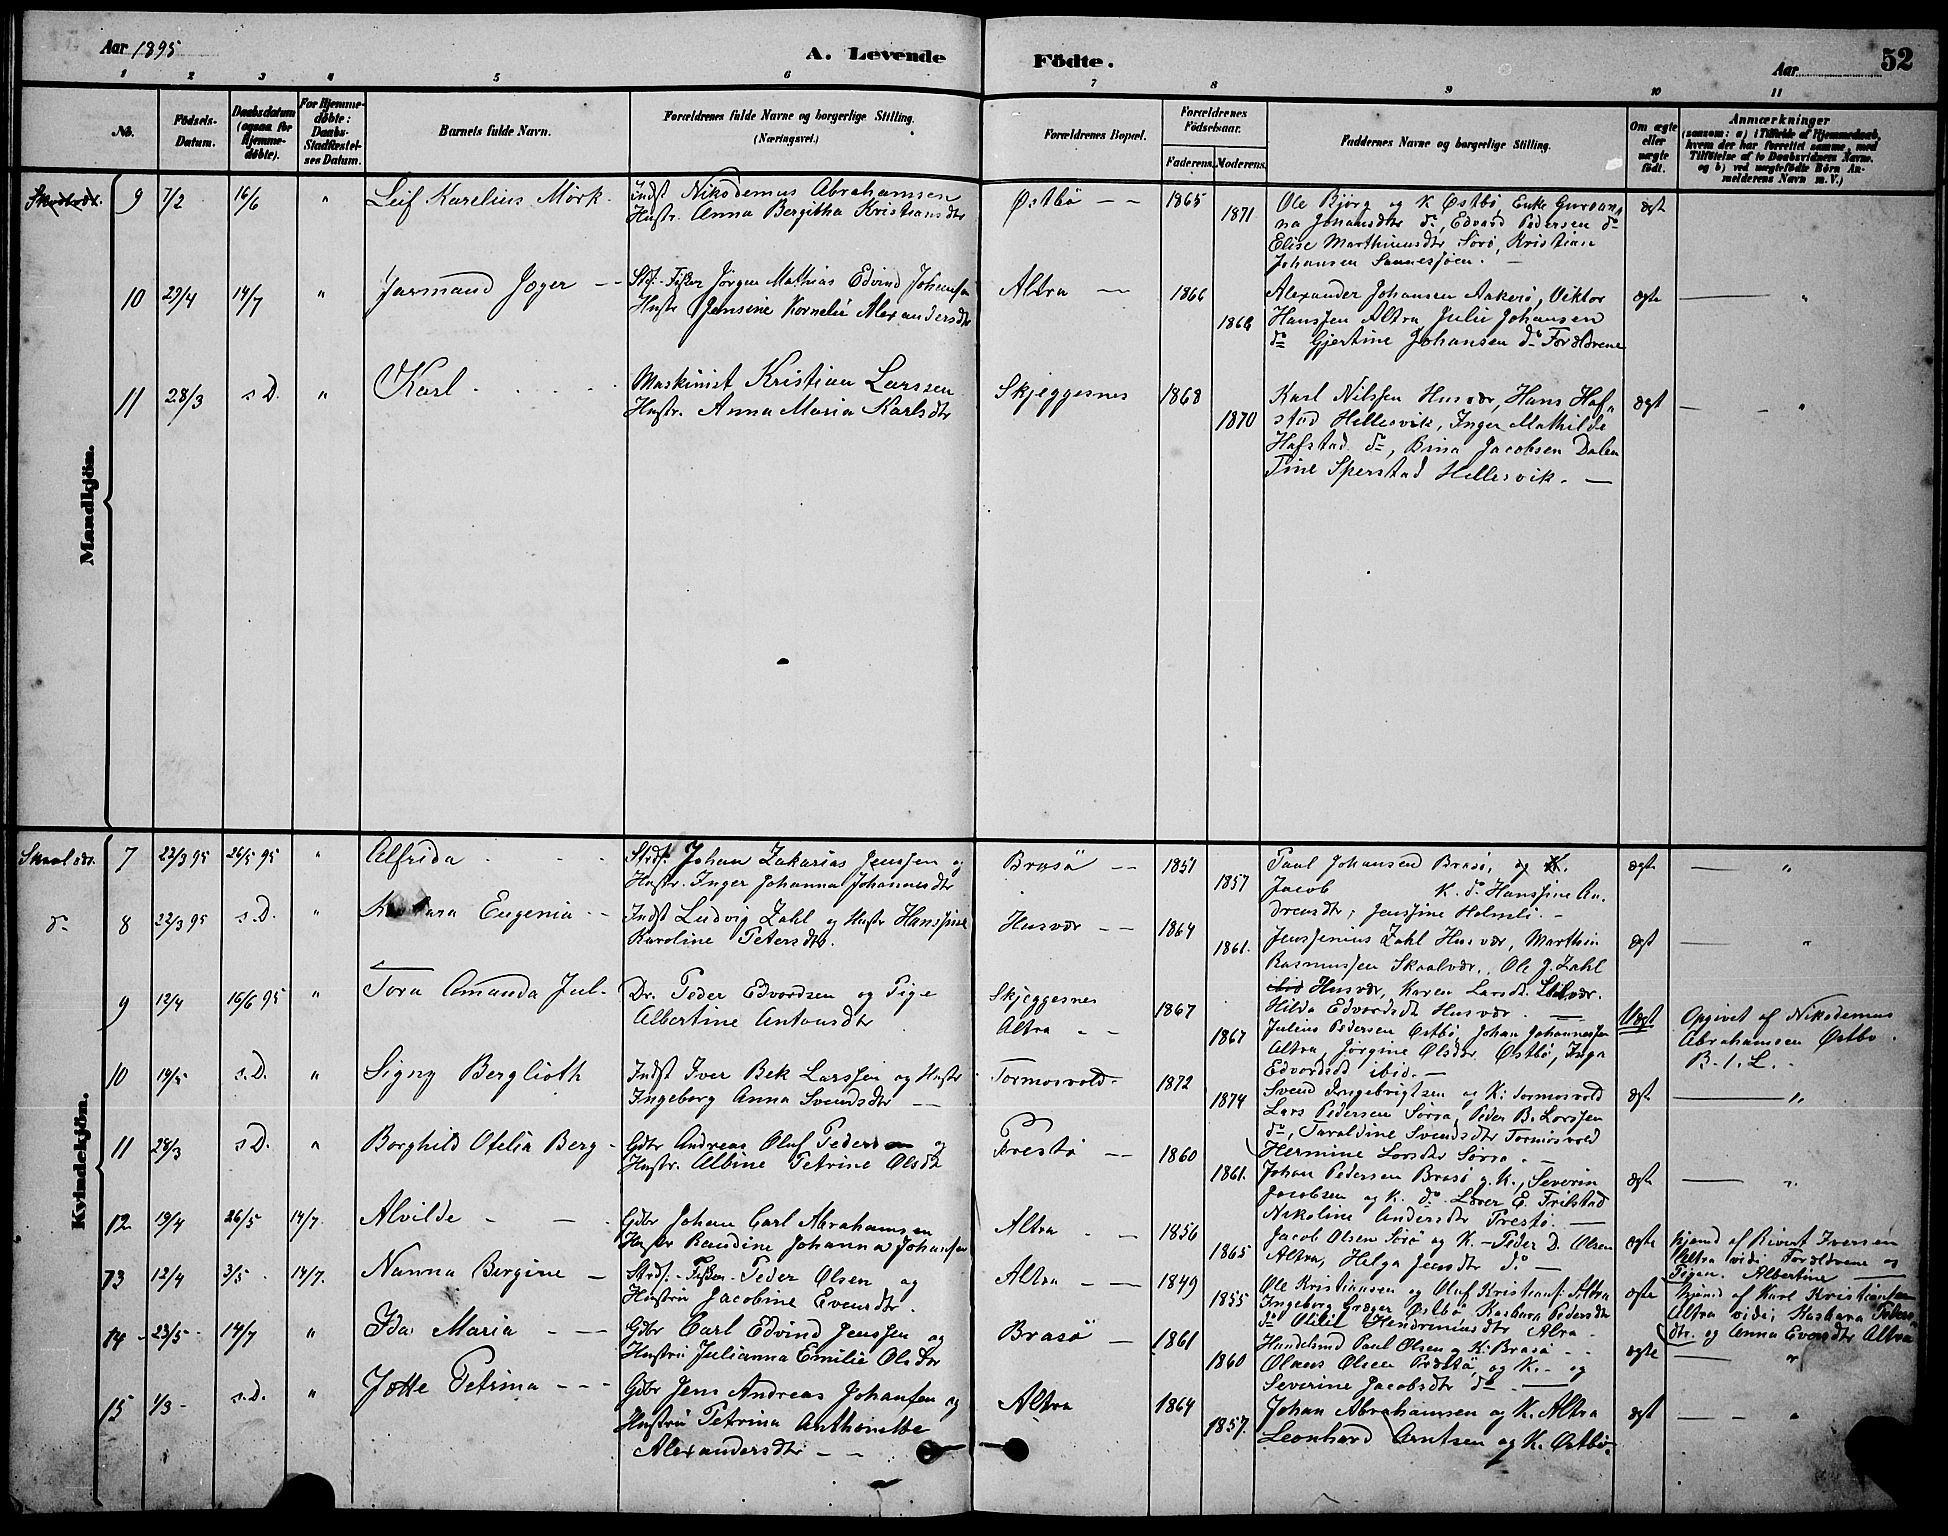 Aar 1895
A. Levende Födte.
Aar 52
1 2 3 4 5 6 7 8 9 10 11
No.
Födsels-Datum.
Daabsdatum (ogsaa for Hjemme-døbte).
For Hjemme-døbte: Daabs-Stadfæstel-ses Datum.
Barnets fulde Navn.
Forældrenes fulde Navne og borgerlige Stilling. (Næringsvei.)
Forældrenes Bopæl.
Forældrenes Födselsaar.
Faderens. Moderens.
Faddernes Navne og borgerlige Stilling.
Om ægte eller uægte født.
Anmærkninger
(saasom: a) i Tilfælde af Hjemmedaab, hvem der har forrettet samme, med Tilföielse af to Daabsvidners Navne, og b) ved uægtefödte Börn An-melderens Navn m. V.)
Mandkjön.
9 7/2 16/6 " Leif Karelius Mörk
Indst Nikodemus Abrahamsen
Hustr. Anna Bergitha Kristiansdtr
Østbö — — 1865 1871
Ole Bjørg og K Østbö, Enke Guroan-
na Johansdtr do, Edvard Pedersen do
Elise Marthinusdtr Sørö, Kristian
Johansen Sannesjöen. —
ægt
10 29/4 14/7 " Jarmand Joger — —
Strf. Fisker Jörgen Mathias Edvind Johansen
Hustr Jensine Kornelie Alexandersdtr
Altra — — 1866 1868
Alexander Johansen Aakerö, Viktor
Hanssen Altra Julie Johansen
do Gjertine Johansen do Forældrene
ægte — "
11 28/3 s.D. " Karl - - - -
Maskinist Kristian Larssen
Hustr. Anna Maria Karlsdtr
Skjeggesnes 1868 1870
Karl Nilssen Husvær, Hans Haf-
stad Hellesvik, Inger Mathilde
Hafstad do, Bina Jacobsen Dalen
Tine Sperstad Hellesvik. —
ægt — - "
Kvindekjön.
Skaalvær. 7 22/3 95 26/5 95 " Alfrida - - -
Strdf. Johan Zakarias Jenssen og
Hustr. Inger Johanna Johannesdtr
Brasö — — 1851 1857
Paul Johansen Brasö, og K.
Jacob K. do Hanssine An-
dreasdtr, Jenssine Holmsli. —
ægte — "
do 8 22/3 95 s.D. " Eugenia — —
Indst Ludvig Zahl og Hustr Hanssine
Karoline Petersdtr.
Husvær — — 1864 1861.
Jenssenius Zahl Husvær, Marthin
Rasmussen Skaalvær, Ole J. Zahl
Husvær, Karen Larsdt.
Hilda Edvardsdt Husvær. —
ægt — "
9 12/4 16/6 95 " Tora Amanda Jul-
Dr. Peder Edvardsen og Pige
Albertine Antonsdtr
Skjeggesnes
Altra - - 1867 1867
Julius Pedersen Østbö, Johan Johannessen
Altra, Jörgine Olsdtr Østbö, Inga
Edvardsdt ibid. —
Uægt
Opgivet af Nikodemus
Abrahamsen Østbö.
B. 1. L. -
10 19/5 s.D. " Signy Berglioth
Indst Iver Bek Larssen og Hustr
Ingeborg Anna Svendsdtr —
Tormosvold. 1872 1874
Svend Ingebrigtsen og K. Tormosvold
Lars Pedersen Sørra, Peder B. Larssen
do, Taraldine Svendsdtr Tormosvold
Hermine Larsdtr Sørra. —
ægt — "
11 28/3 s.D. " Borghild Otelia Berg -
Gdbr Andreas Oluf Pedersen og
Hustr. Albine Petrine Olsdt
Prestö — — 1860 1861.
Johan Pedersen Brasö og K., Severin
Jacobsen og K. do. Lærer E. Frilstad
Nikoline Andersdtr Prestö. —
ægt — "
12 19/4 26/5 14/7. Alvilde - —
Gdbr Johan Carl Abrahamsen
Hustr Randine Johanna Johansen
Altra - — 1856 1865
Jacob Olsen Sörö og K. — Peder D. Olsen
Altra, Helga Jensdtr do —
ægte
hjemd af Rivert Iversen
Altra vidi Forældrene og
Pigen. Albertine —
13 12/4 3/5 14/7. Nanna Bergine —
Strdf. - Fisker - Peder Olsen og
Hustru Jacobine Evensdtr.
Altra - — 1849 1855
Ole Kristiansen og Oluf Kristians: Altra
Ingeborg Græger Østbö Rasbara Pedersdtr
do Otilie Hendriniusdtr Altra -
ægte
hjemd af Karl Kristiansen
Altra vidi; Rasbara Peders-
dtr. og Anna Evensdtr Altra
14 23/5 14/7 " Ida Maria — —
Gdbr Carl Edvind Jenssen og
Hustru Julianna Emilie Olsdtr
Brasö — 1861 1860
Handelsmd Paul Olsen og K. Brasö - -
Olaus Olsen Prestö og K. - og
Severine Jacobsdtr do —
ægte — "
15 1/3 s.D. " Jotte Petrina — —
Gdbr Jens Andreas Johansen og
Hustru Petrina Anthonette
Alexandersdtr — —
Altra 1864 1857.
Johan Abrahamsen og K. Altra
Leonhard Arntsen og K. Østbö
ægt — "